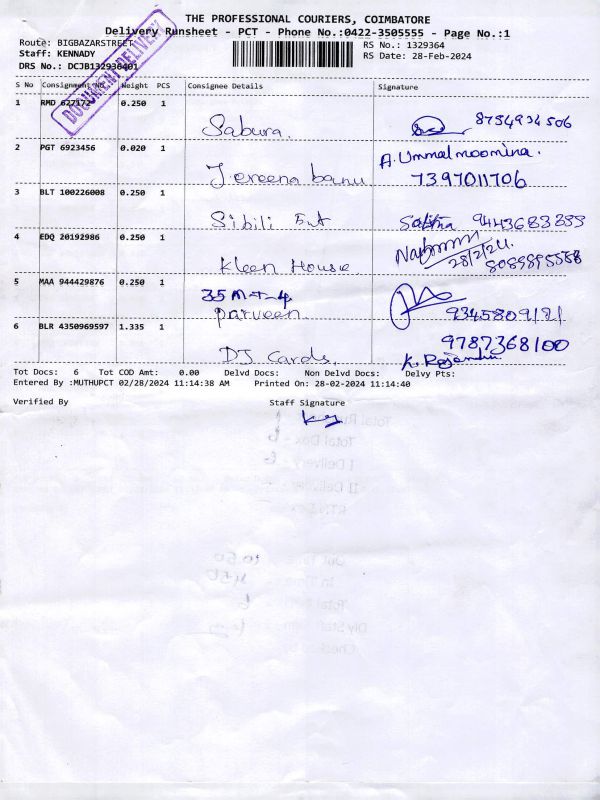 THE PROFESSIONAL COURIERS, COIMBATORE
Delivery Runsheet - PCT - Phone No.:0422-3505555 - Page No.:1
Route: BIGBAZARSTREET RS No.: 1329364
Staff: KENNADY RS Date: 28-Feb-2024
DRS No.: DCJB132936401
DOCUMENT DELIVERY
S No Consignment No. Weight PCS Consignee Details Signature
1 RMD 627172 0.250 1
Sabura. 8754934506
2 PGT 6923456 0.020 1 A. Ummal moomina.
Jereena banu 7397011706
3 BLT 100226008 0.250 1
Sibili Ent Sabitha 9443683855
4 EDQ 20192986 0.250 1
28/2/24.
Kleen House 8089895588
5 MAA 944429876 0.250 1
35 M-T-4
parveen 9345809181
6 BLR 4350969597 1.335 1 9787368100
DJ Cards.
Tot Docs: 6 Tot COD Amt: 0.00 Delvd Docs: Non Delvd Docs: Delvy Pts:
Entered By :MUTHUPCT 02/28/2024 11:14:38 AM Printed On: 28-02-2024 11:14:40
Verified By Staff Signature